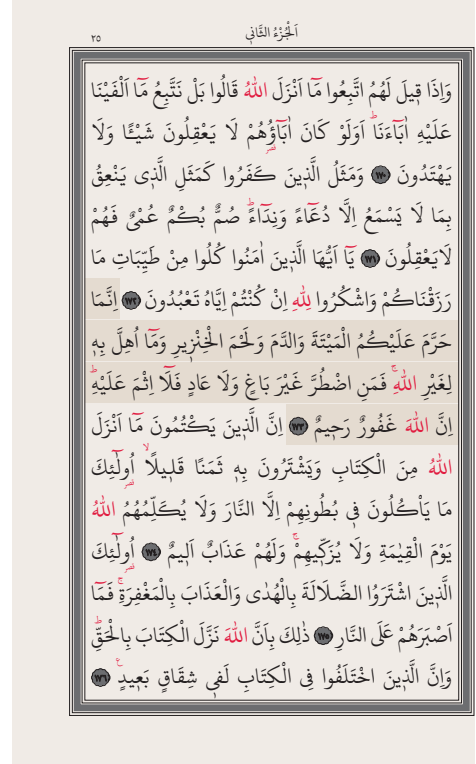 ٢٥
اَلْجُزْءُ الثَّانِي
وَاِذَا قِيلَ لَهُمُ اتَّبِعُوا مَٓا اَنْزَلَ اللّٰهُ قَالُوا بَلْ نَتَّبِعُ مَٓا اَلْفَيْنَا
عَلَيْهِ اٰبَٓاءَنَاۜ اَوَلَوْ كَانَ اٰبَٓاؤُ۬هُمْ لَا يَعْقِلُونَ شَيْـًٔا وَلَا
يَهْتَدُونَ ﴿١٧٠﴾ وَمَثَلُ الَّذٖينَ كَفَرُوا كَمَثَلِ الَّذٖي يَنْعِقُ
بِمَا لَا يَسْمَعُ اِلَّا دُعَٓاءً وَنِدَٓاءًۜ صُمٌّ بُكْمٌ عُمْيٌ فَهُمْ
لَايَعْقِلُونَ ﴿١٧١﴾ يَٓا اَيُّهَا الَّذٖينَ اٰمَنُوا كُلُوا مِنْ طَيِّبَاتِ مَا
رَزَقْنَاكُمْ وَاشْكُرُوا لِلّٰهِ اِنْ كُنْتُمْ اِيَّاهُ تَعْبُدُونَ ﴿١٧٢﴾ اِنَّمَا
حَرَّمَ عَلَيْكُمُ الْمَيْتَةَ وَالدَّمَ وَلَحْمَ الْخِنْزٖيرِ وَمَٓا اُهِلَّ بِهٖ
لِغَيْرِ اللّٰهِۚ فَمَنِ اضْطُرَّ غَيْرَ بَاغٍ وَلَا عَادٍ فَلَٓا اِثْمَ عَلَيْهِۜ
اِنَّ اللّٰهَ غَفُورٌ رَحٖيمٌ ﴿١٧٣﴾ اِنَّ الَّذٖينَ يَكْتُمُونَ مَٓا اَنْزَلَ
اللّٰهُ مِنَ الْكِتَابِ وَيَشْتَرُونَ بِهٖ ثَمَنًا قَلٖيلًاۙ اُو۬لٰٓئِكَ
مَا يَاْكُلُونَ فٖي بُطُونِهِمْ اِلَّا النَّارَ وَلَا يُكَلِّمُهُمُ اللّٰهُ
يَوْمَ الْقِيٰمَةِ وَلَا يُزَكّٖيهِمْۚ وَلَهُمْ عَذَابٌ اَلٖيمٌ ﴿١٧٤﴾ اُو۬لٰٓئِكَ
الَّذٖينَ اشْتَرَوُا الضَّلَالَةَ بِالْهُدٰى وَالْعَذَابَ بِالْمَغْفِرَةِۚ فَمَٓا
اَصْبَرَهُمْ عَلَى النَّارِ ﴿١٧٥﴾ ذٰلِكَ بِاَنَّ اللّٰهَ نَزَّلَ الْكِتَابَ بِالْحَقِّۜ
وَاِنَّ الَّذٖينَ اخْتَلَفُوا فِي الْكِتَابِ لَفٖي شِقَاقٍ بَعٖيدٍ۟ ﴿١٧٦﴾